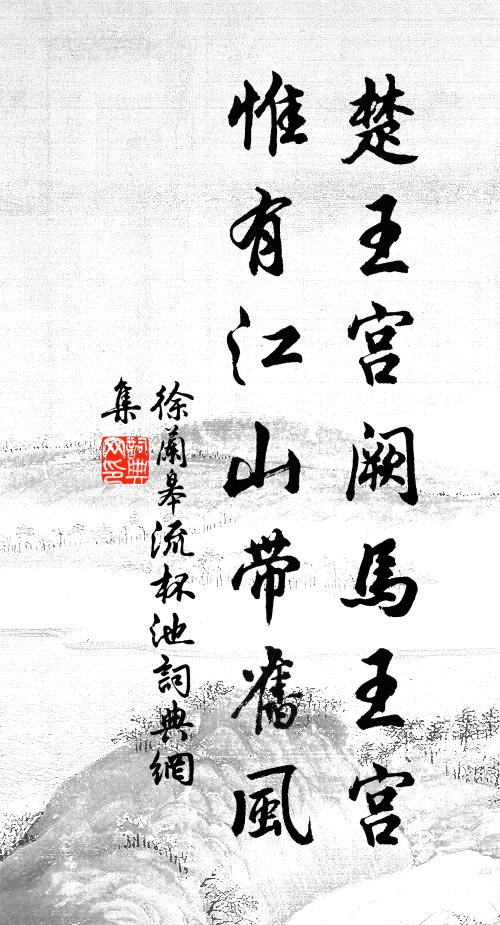 楚王宮闕馬王宮
惟有江山帶舊風
徐蘭皋流杯池詞典網
集
詞典
网印